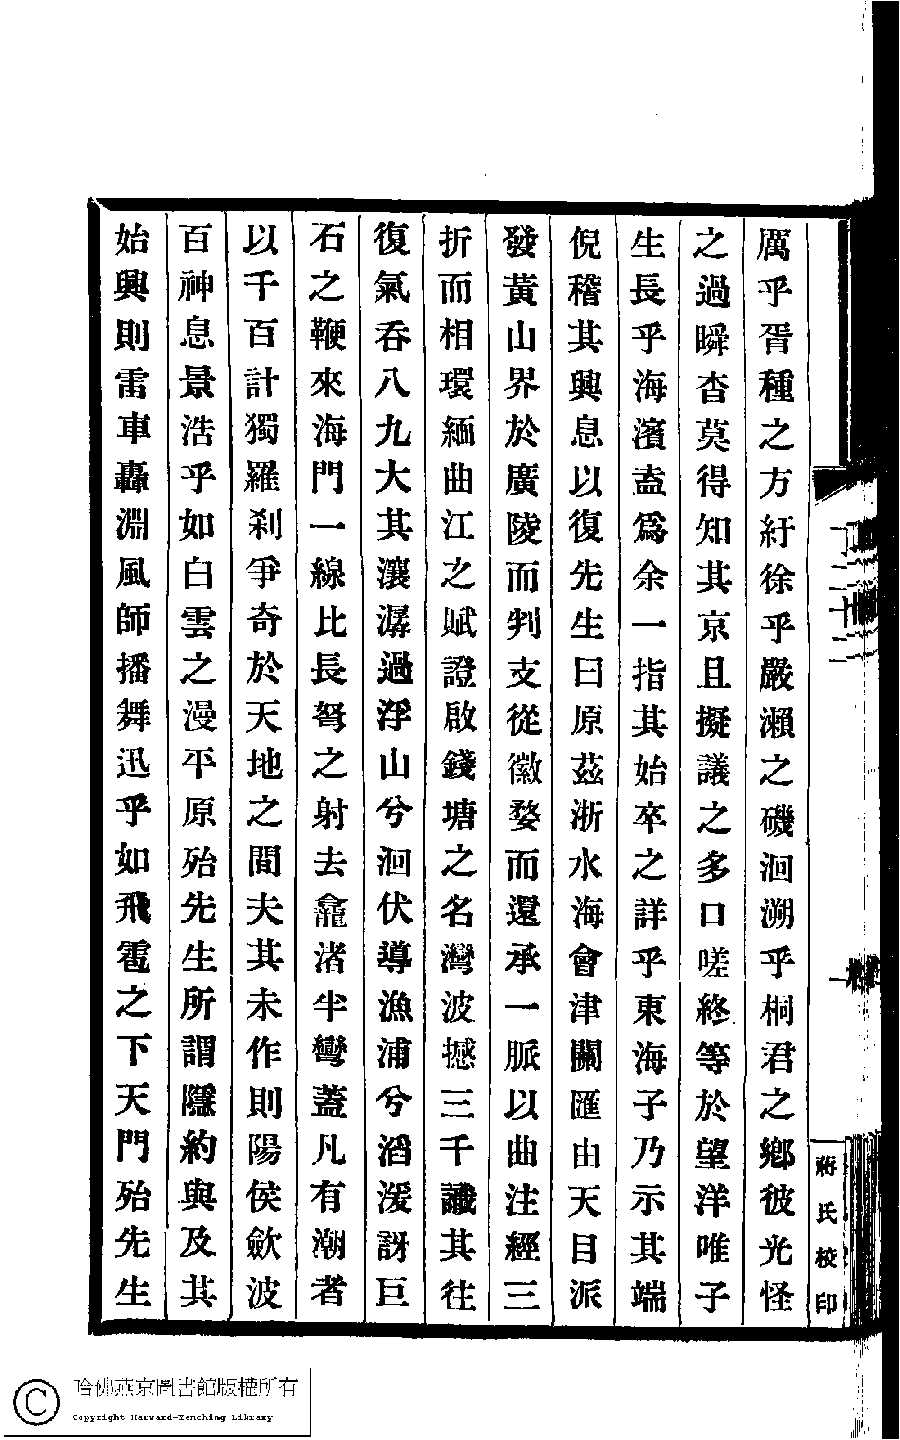 厲乎胥種之方紆徐乎嚴瀨之磯洄溯乎桐君之鄉彼光怪
之過瞬杳莫得知其京且擬議之多口嗟終等於望洋唯子
生長乎海濱盍爲余一指其始卒之詳乎東海子乃示其端
倪稽其興息以復先生曰原茲浙水海會津關匯由天目派
發黃山界於廣陵而判支從徽婺而還承一脈以曲注經三
折而相環緬曲江之賦證啟錢塘之名灣波撼三千讖其往
復氣吞八九大其瀼潺過浮山兮洄伏導漁浦兮滔湲訝巨
石之鞭來海門一線比長弩之射去龕渚半彎蓋凡有潮者
以千百計獨羅刹爭奇於天地之間夫其未作則陽侯歛波
百神息景浩乎如白雲之漫平原殆先生所謂隱約與及其
始興則雷車轟淵風師播舞迅乎如飛雹之下天門殆先生
蔣氏校印
哈佛燕京圖書館版權所有
Copyright Harvard-Yenching Library